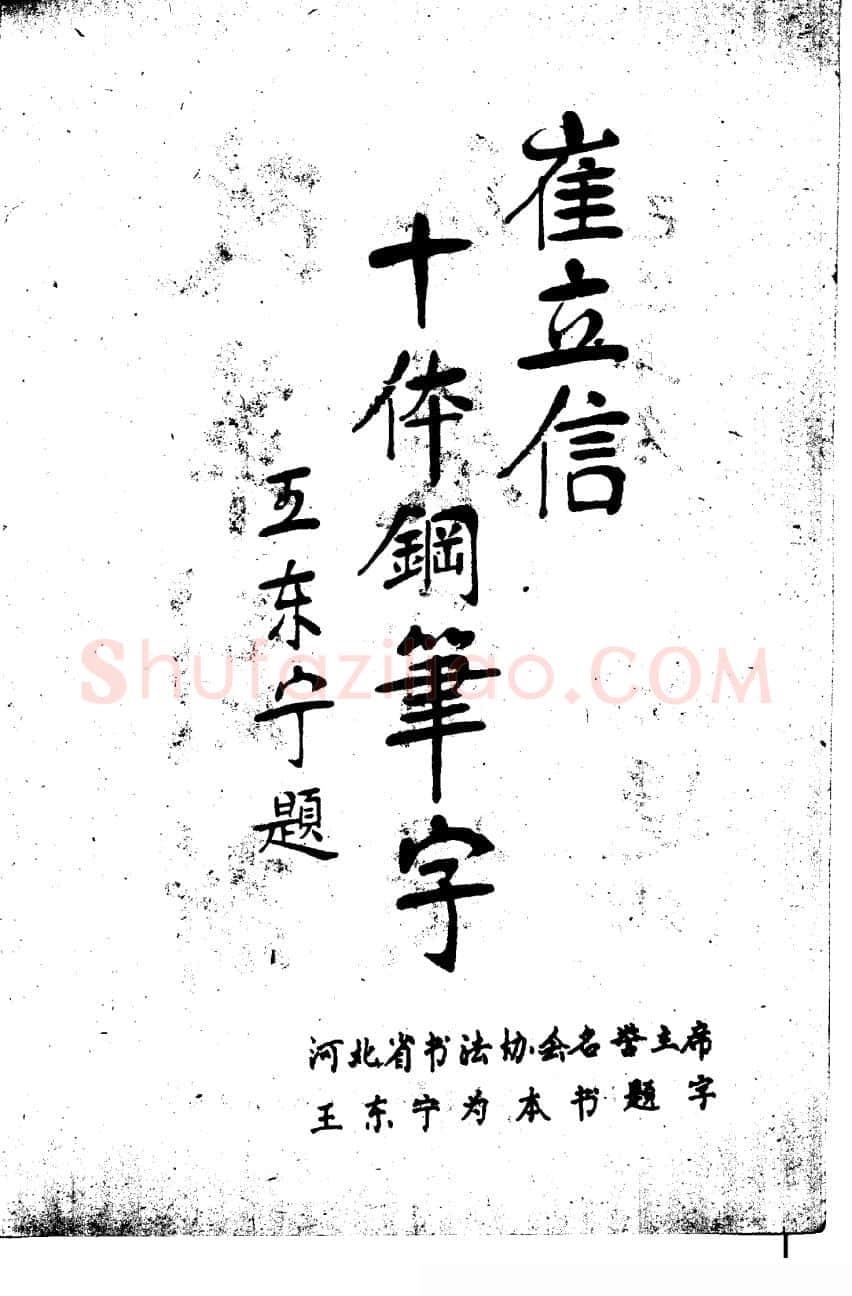 崔立信
十体鋼筆字
王东宁題
河北省书法协会名誉主席
王东宁为本书题字
Shufaziliao.COM
1